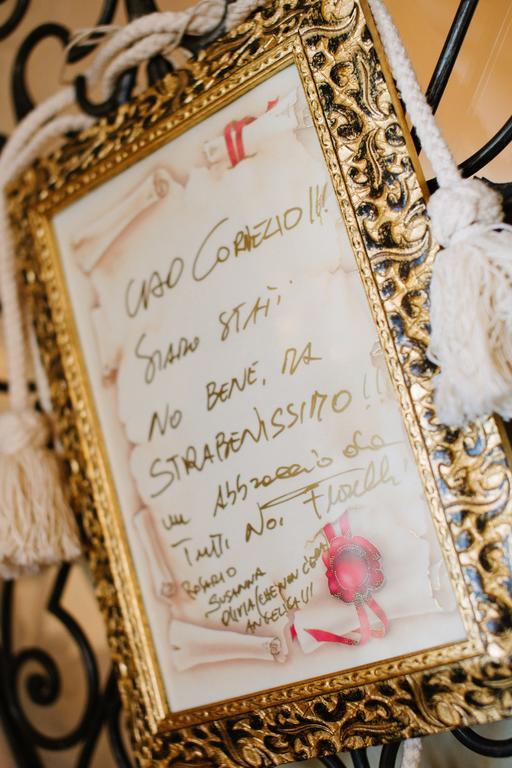 CIAO CORNELIO!!!
SIAMO STATI
NO BENE, MA
STRABENISSIMO!!
un Abbraccio da
TUTTI NOI Fiorelli
ROSARIO
SUSANNA
OLIVIA
ANGELICA!!